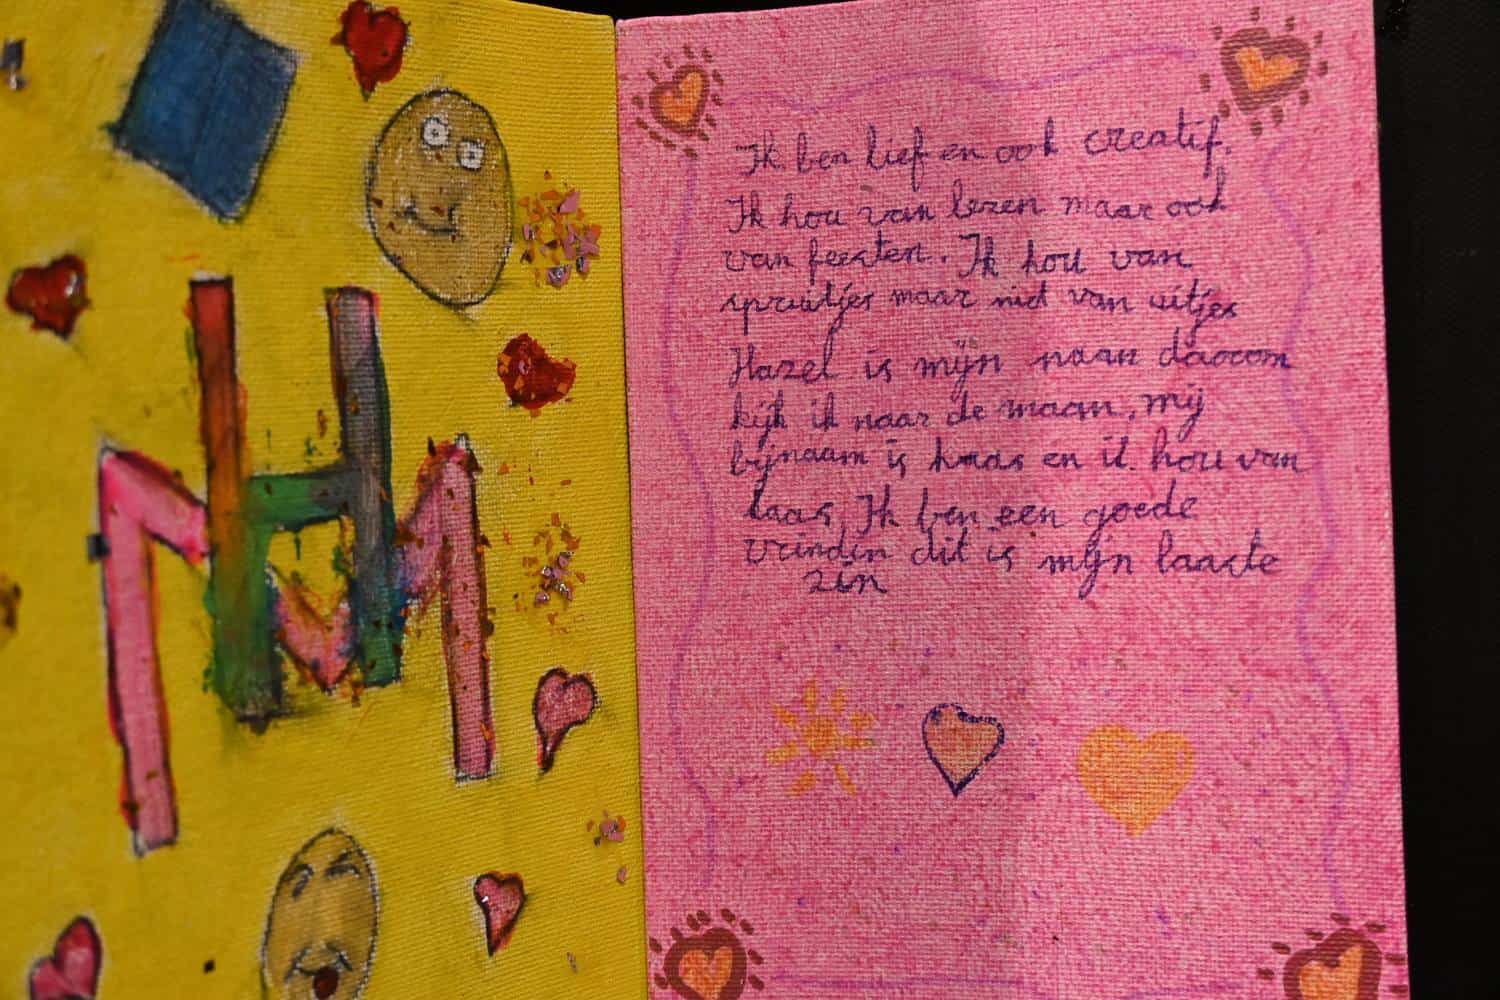 HM
Ik ben lief en ook creatif.
Ik hou van lezen maar ook
van feesten. Ik hou van
spruitjes maar niet van uitjes
Hazel is mijn naam daarom
kijk ik naar de maan, mij
bijnaam is haas en ik hou van
kaas, Ik ben een goede
vrindin dit is mijn laaste
zin